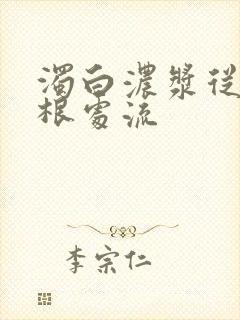 濁白濃漿從
根處流
李宗仁